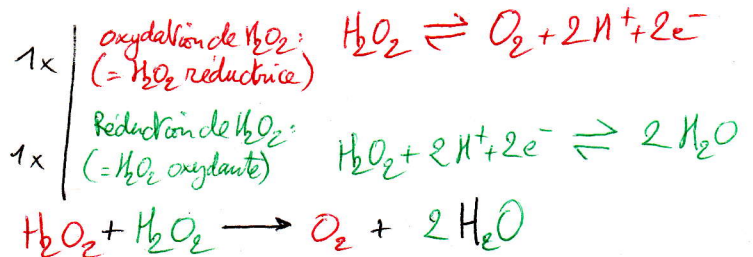 1x oxydation de H₂O₂ : H₂O₂ ⇌ O₂ + 2H⁺ + 2e⁻
(= H₂O₂ réductrice)
1x Réduction de H₂O₂ :
(= H₂O₂ oxydante) H₂O₂ + 2H⁺ + 2e⁻ ⇌ 2 H₂O
H₂O₂ + H₂O₂ → O₂ + 2 H₂O